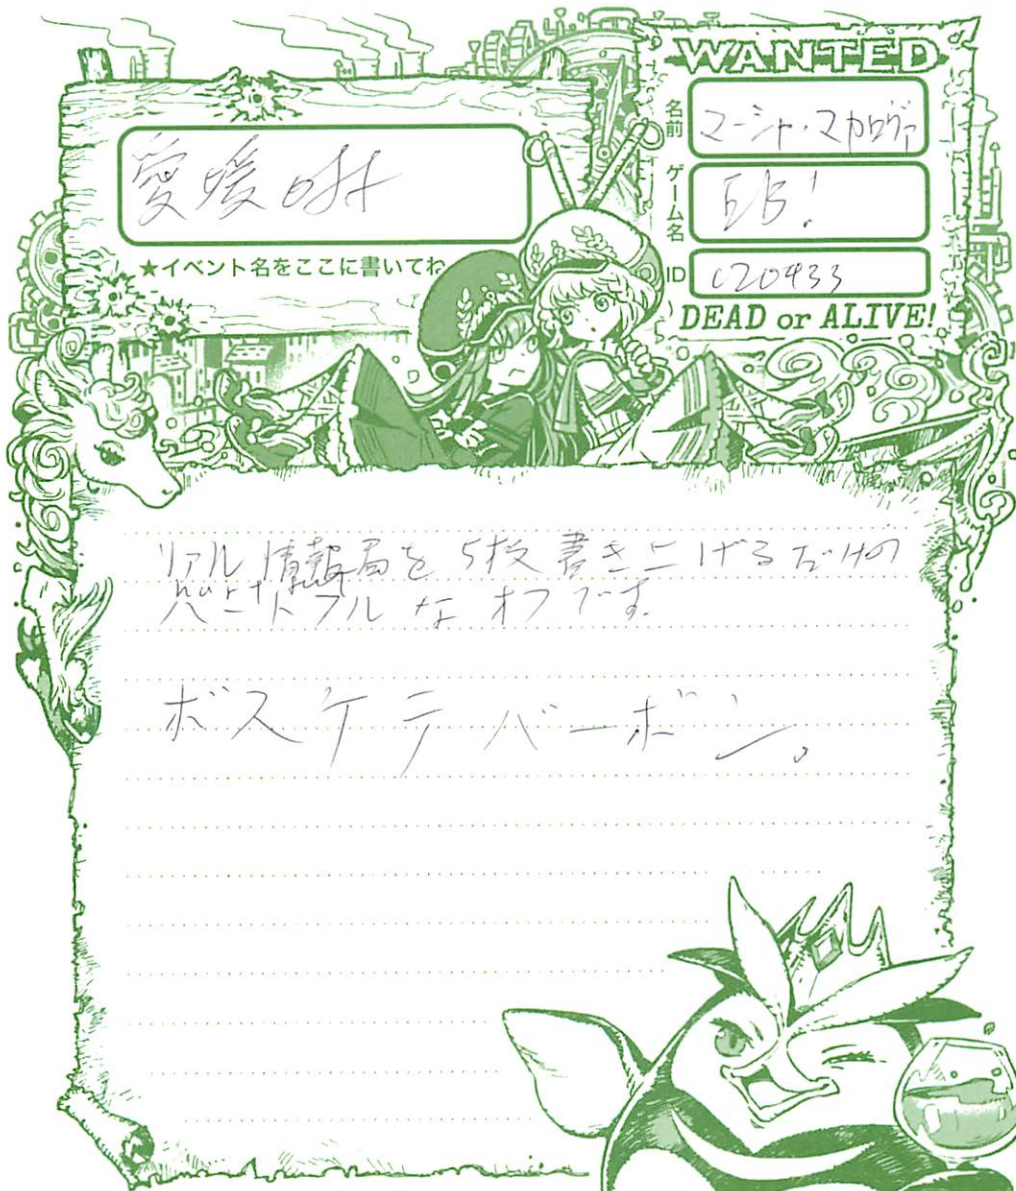 愛媛オフ
★イベント名をここに書いてね
WANTED
名前
マーシャ・マカロヴァ
ゲーム名
EB!
ID
c20433
DEAD or ALIVE!
リアル情報局を5枚書き上げるだけの
hurt
ハートフルなオフです。
ボスケテバーボン。